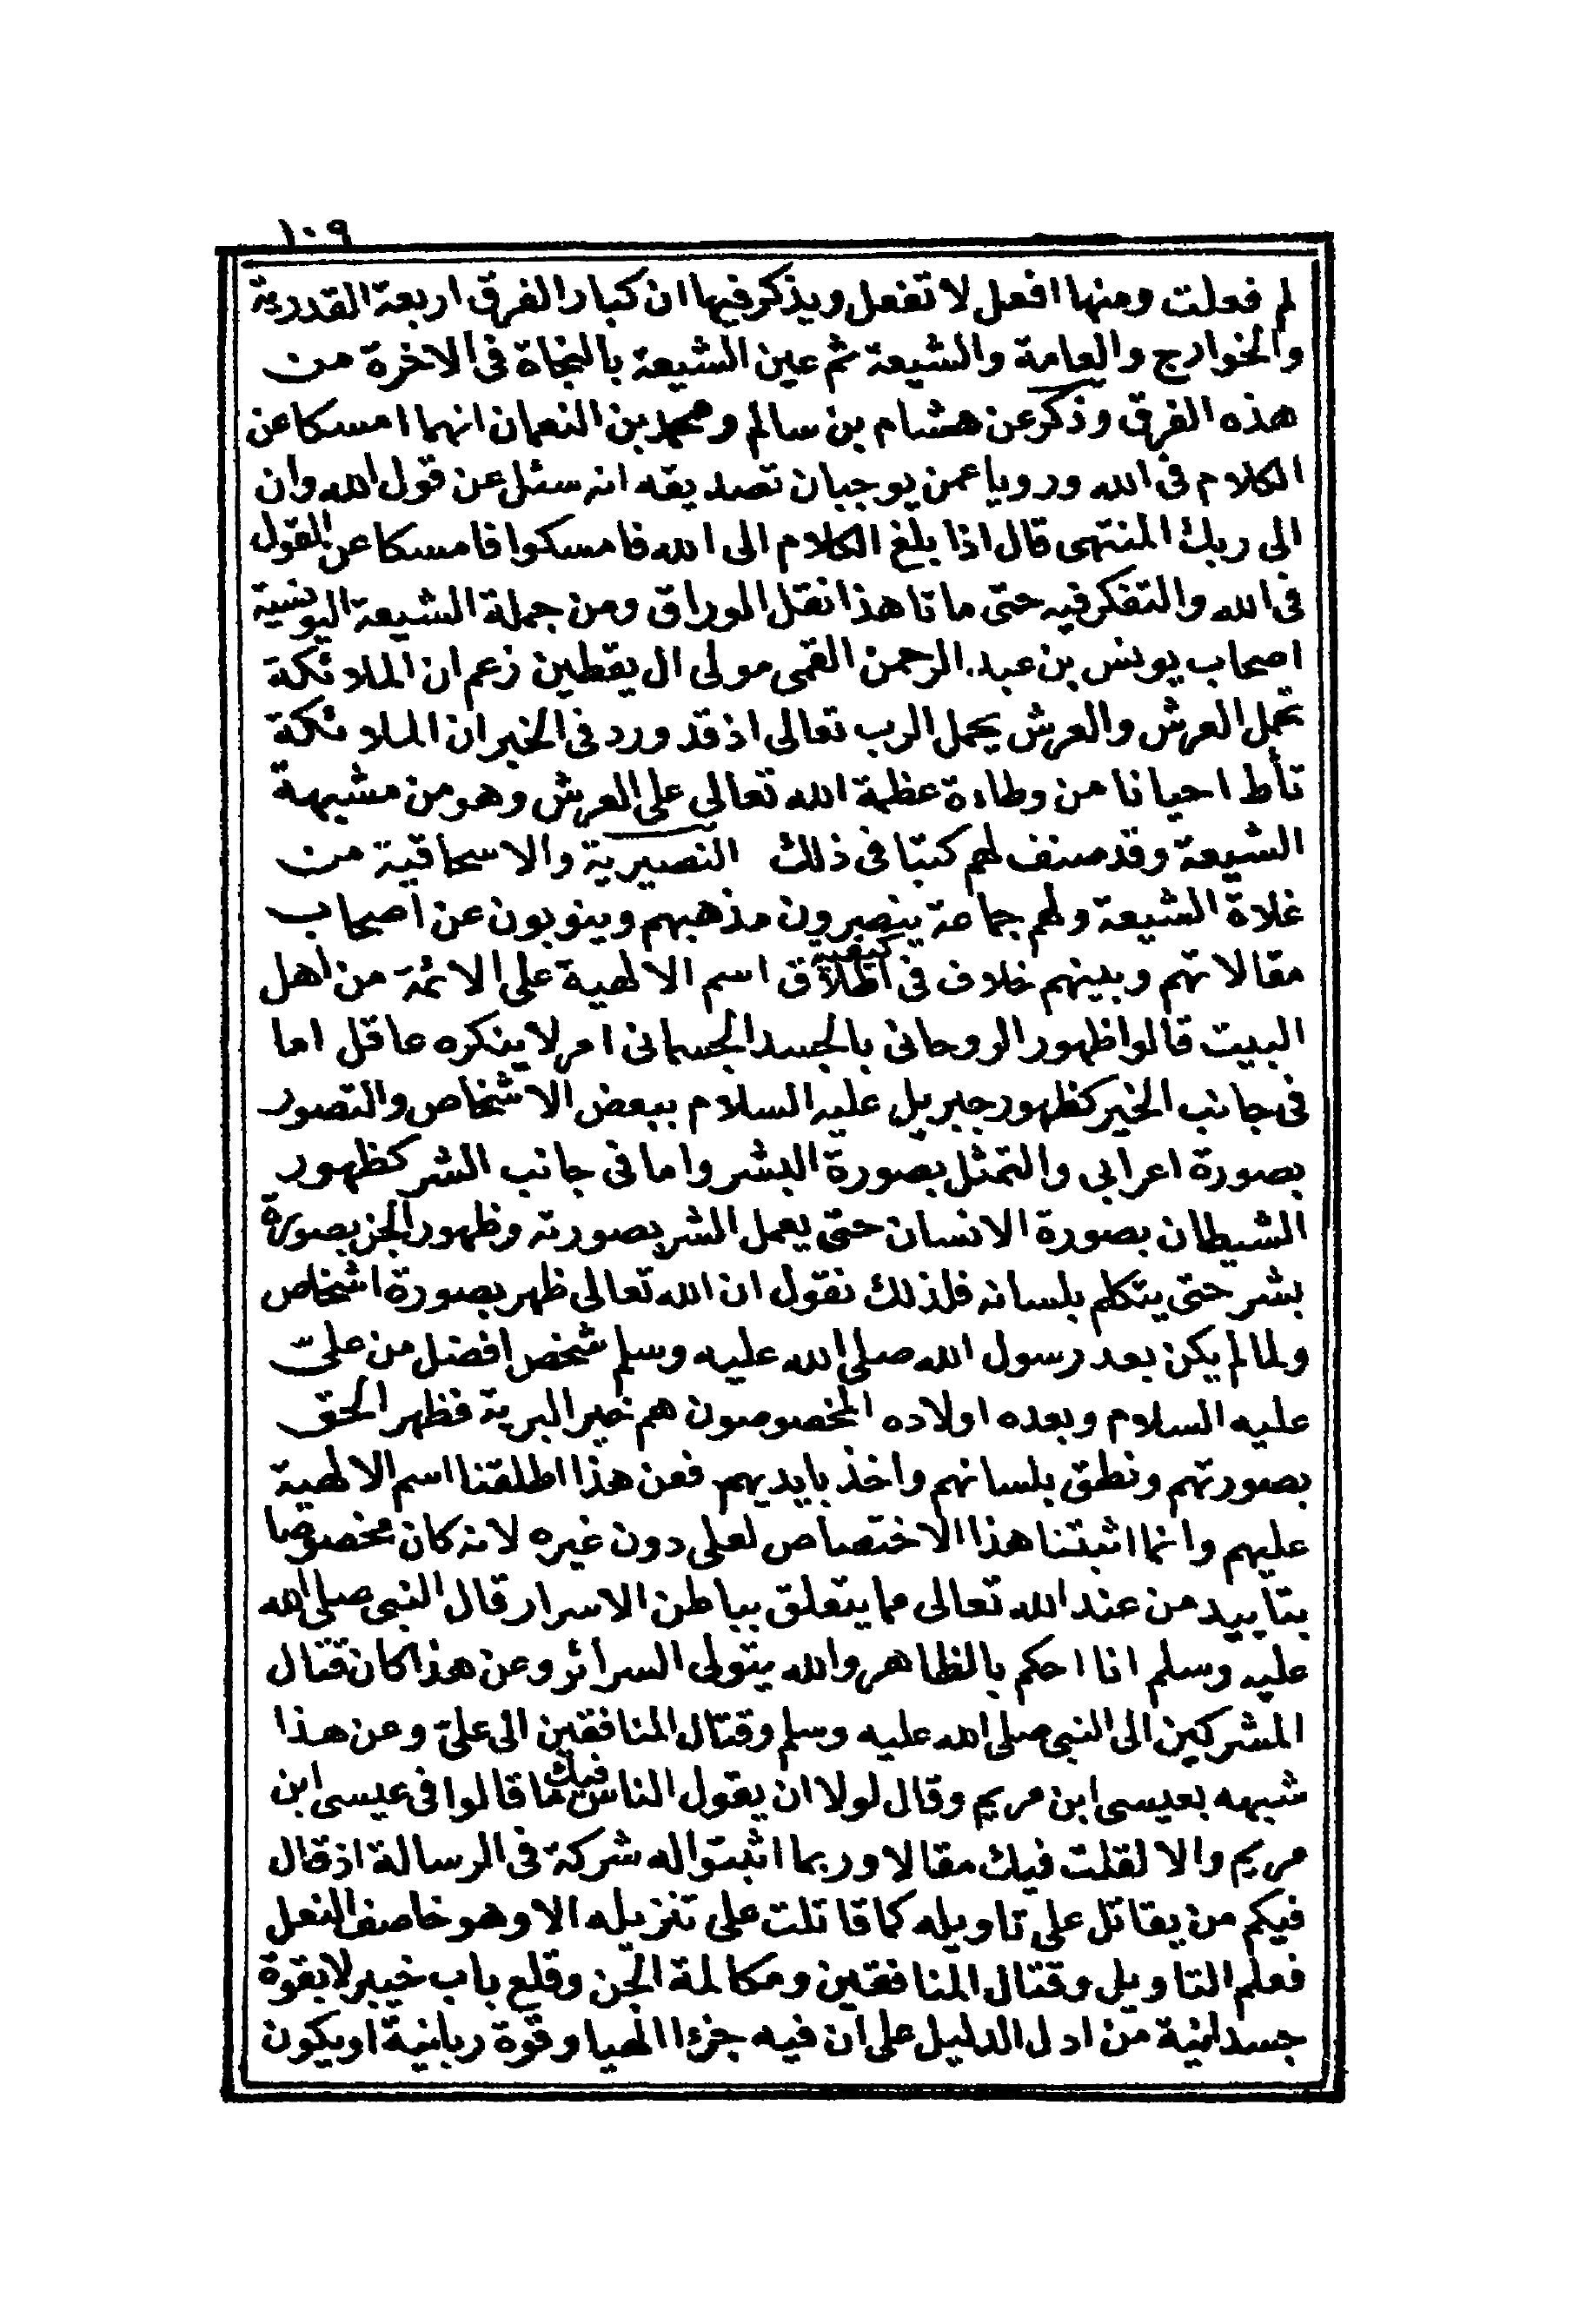 ١٠٩
لم فعلت ومنها افعل لا تفعل ويذكر فيها ان كبار الفرق اربعة القدرية
والخوارج والعامة والشيعة ثم عين الشيعة بالنجاة فى الاخرة من
هذه الفرق وذكر عن هشام بن سالم ومحمد بن النعمان انهما امسكا عن
الكلام فى الله ورويا عمن يوجبان تصديقه انه سئل عن قول الله وان
الى ربك المنتهى قال اذا بلغ الكلام الى الله فامسكوا فامسكا عن القول
فى الله والتفكر فيه حتى ماتا هذا نقل الوراق ومن جملة الشيعة اليونسية
اصحاب يونس بن عبد الرحمن القمى مولى ال يقطين زعم ان الملائكة
تحمل العرش والعرش يحمل الرب تعالى اذ قد ورد فى الخبر ان الملائكة
تأط احيانا من وطاءة عظمة الله تعالى على العرش وهو من مشبهة
الشيعة وقد صنف لهم كتبا فى ذلك النصيرية والاسحاقية من
غلاة الشيعة ولهم جماعة ينصرون مذهبهم وينوبون عن اصحاب
مقالاتهم وبينهم خلاف فى كيفية اطلاق اسم الالهية على الائمة من اهل
البيت قالوا ظهور الروحانى بالجسد الجسمانى امر لا ينكره عاقل اما
فى جانب الخير كظهور جبريل عليه السلام ببعض الاشخاص والتصور
بصورة اعرابى والتمثل بصورة البشر واما فى جانب الشر كظهور
الشيطان بصورة الانسان حتى يعمل الشر بصورته وظهور الجن بصورة
بشر حتى يتكلم بلسانه فلذلك نقول ان الله تعالى ظهر بصورة اشخاص
ولما لم يكن بعد رسول الله صلى الله عليه وسلم شخص افضل من علىّ
عليه السلام وبعده اولاده المخصوصون هم خير البرية فظهر الحق
بصورتهم ونطق بلسانهم واخذ بايديهم فعن هذا اطلقنا اسم الالهية
عليهم وانما اثبتنا هذا الاختصاص لعلى دون غيره لانه كان مخصوصا
بتاييد من عند الله تعالى مما يتعلق بباطن الاسرار قال النبى صلى الله
عليه وسلم انا احكم بالظاهر والله يتولى السرائر وعن هذا كان قتال
المشركين الى النبى صلى الله عليه وسلم وقتال المنافقين الى علىّ وعن هذا
شبهه بعيسى ابن مريم وقال لولا ان يقول الناس فيك ما قالوا فى عيسى ابن
مريم والا لقلت فيك مقالا وربما اثبتوا له شركة فى الرسالة اذ قال
فيكم من يقاتل على تاويله كما قاتلت على تنزيله الا وهو خاصف النعل
فعلم التاويل وقتال المنافقين ومكالمة الجن وقلع باب خيبر لا بقوة
جسدانية من ادل الدليل على ان فيه جزءا الهيا وقوة ربانية او يكون